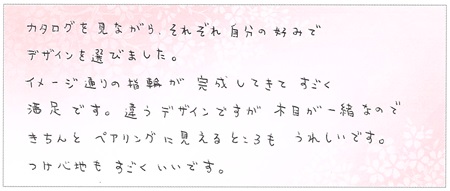 カタログを見ながら、それぞれ自分の好みで
デザインを選びました。
イメージ通りの指輪が完成してきてすごく
満足です。違うデザインですが木目が一緒なので
きちんとペアリングに見えるところもうれしいです。
つけ心地もすごくいいです。